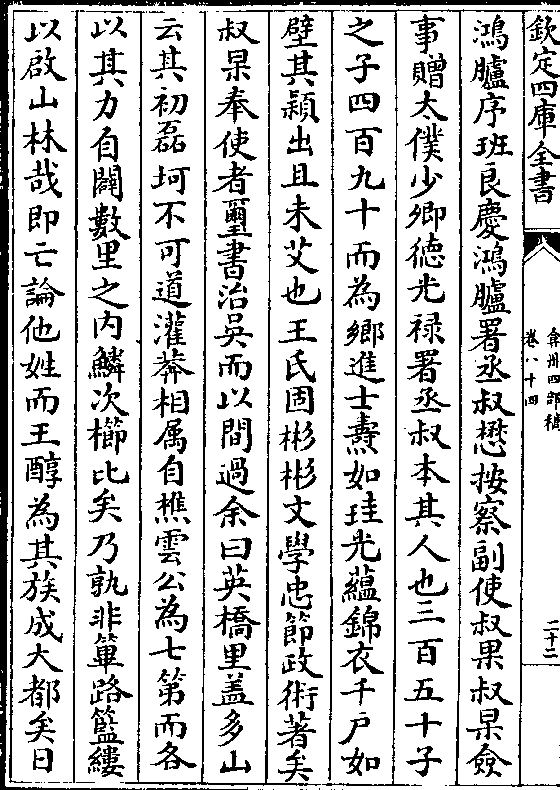 欽定四庫全書
弇州四部稿
卷八十四
二十二
鴻臚序班良慶鴻臚署丞叔懋按察副使叔果叔杲僉
事贈太僕少卿德光禄署丞叔本其人也三百五十子
之子四百九十而為鄉進士燾如珪光蘊錦衣千戶如
壁其穎出且未艾也王氏固彬彬文學忠節政術著矣
叔杲奉使者璽書治吳而以間過余曰英橋里盖多山
云其初磊坷不可道灌莽相属自樵雲公為七第而各
以其力自闢數里之内鱗次櫛比矣乃孰非篳路籃縷
以啟山林哉即亡論他姓而王醇為其族成大都矣日